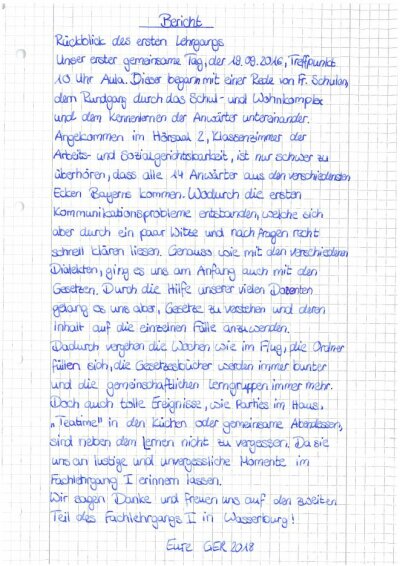 Bericht
Rückblick des ersten Lehrgangs
Unser erster gemeinsame Tag, der 19.09.2016, Treffpunkt
10 Uhr Aula. Dieser begann mit einer Rede von Fr. Schulan,
dem Rundgang durch das Schul- und Wohnkomplex
und dem Kennenlernen der Anwärter untereinander.
Angekommen im Hörsaal 2, Klassenzimmer der
Arbeits- und Sozialgerichtsbarkeit, ist nur schwer zu
überhören, dass alle 14 Anwärter aus den verschiedensten
Ecken Bayerns kommen. Wodurch die ersten
Kommunikationsprobleme entstanden, welche sich
aber durch ein paar Witze und nach Fragen recht
schnell klären liesen. Genauso wie mit den verschiedenen
Dialekten, ging es uns am Anfang auch mit den
Gesetzen. Durch die Hilfe unserer vielen Dozenten
gelang es uns aber, Gesetze zu verstehen und deren
Inhalt auf die einzelnen Fälle anzuwenden.
Dadurch vergehen die Wochen wie im Flug, die Ordner
füllen sich, die Gesetzesbücher werden immer bunter
und die gemeinschaftlichen Lerngruppen immer mehr.
Doch auch tolle Ereignisse, wie Parties im Haus,
„Teatime" in den Küchen oder gemeinsame Abendessen,
sind neben dem Lernen nicht zu vergessen. Da sie
uns an lustige und unvergessliche Momente im
Fachlehrgang I erinnern lassen.
Wir sagen Danke und freuen uns auf den zweiten
Teil des Fachlehrgangs II in Wasserburg!
Eure GER 2018